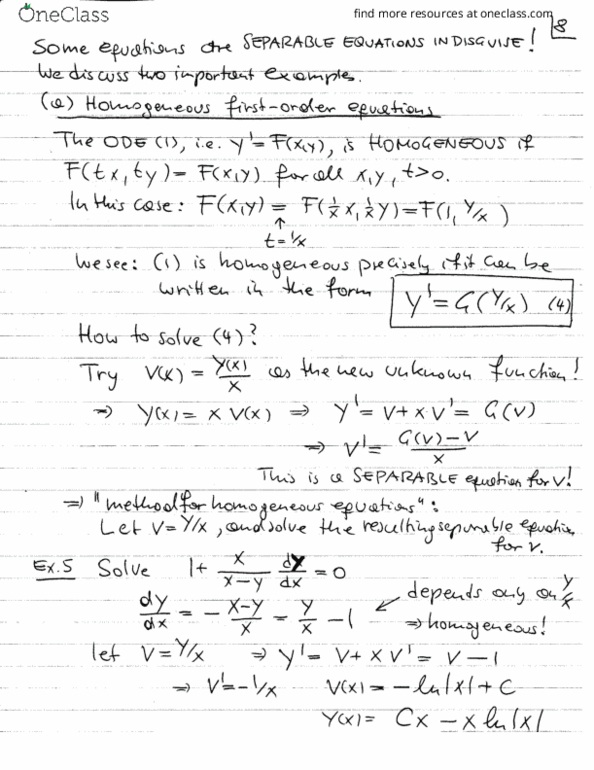 OneClass
find more resources at oneclass.com
8
Some equations are SEPARABLE EQUATIONS IN DISGUISE!
We discuss two important examples.
(a) Homogeneous first-order equations
The ODE (1), i.e. y' = F(x,y), is HOMOGENEOUS if
F(tx, ty) = F(x,y) for all x,y, t>0.
In this case: F(x,y) = F(1/x x, 1/x y) = F(1, y/x)
↑
t = 1/x
We see: (1) is homogeneous precisely if it can be
written in the form y' = G(y/x) (4)
How to solve (4)?
Try v(x) = y(x)/x as the new unknown function!
⇒ y(x) = x v(x) ⇒ y' = v + x v' = G(v)
⇒ v' = G(v) - v / x
This is a SEPARABLE equation for v!
⇒ "method for homogeneous equations":
Let v = y/x, and solve the resulting separable equation
for v.
Ex.5 Solve 1 + x/(x-y) dy/dx = 0
dy/dx = - (x-y)/x = y/x - 1 ↙ depends only on y/x
⇒ homogeneous!
let v = y/x ⇒ y' = v + x v' = v - 1
⇒ v' = -1/x v(x) = -ln|x| + C
y(x) = Cx - x ln|x|